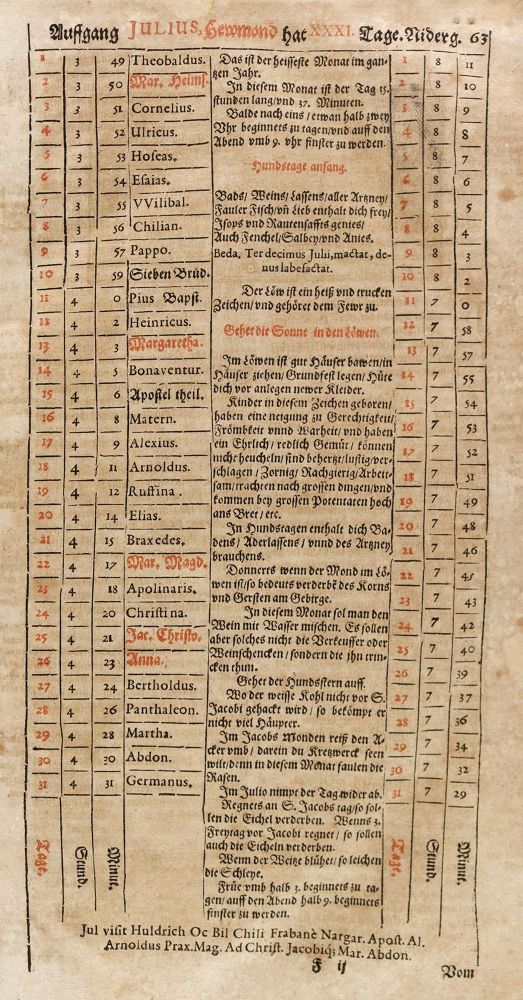 Auffgang JULIUS, Hewmond hat XXXI. Tage. Niderg. 63
1 3 49 Theobaldus.
2 3 50 Mar. Heims.
3 3 51 Cornelius.
4 3 52 Ulricus.
5 3 53 Hoseas.
6 3 54 Esaias.
7 3 55 VVilibal.
8 3 56 Chilian.
9 3 57 Pappo.
10 3 59 Sieben Brüd.
11 4 0 Pius Bapst.
12 4 2 Heinricus.
13 4 3 Margaretha.
14 4 5 Bonaventur.
15 4 6 Apostel theil.
16 4 8 Matern.
17 4 9 Alexius.
18 4 11 Arnoldus.
19 4 12 Ruffina.
20 4 14 Elias.
21 4 15 Braxedes.
22 4 17 Mar. Magd.
23 4 18 Apolinaris.
24 4 20 Christina.
25 4 21 Jac. Christo.
26 4 23 Anna.
27 4 24 Bertholdus.
28 4 26 Panthaleon.
29 4 28 Martha.
30 4 30 Abdon.
31 4 31 Germanus.
Tage. Stund. Minut.
Das ist der heisseste Monat im gan-
tzen Jahr.
In diesem Monat ist der Tag 15.
stunden lang/vnd 37. Minuten.
Balde nach eins/etwan halb zwey
Vhr beginnets zu tagen/vnd auff den
Abend vmb 9. vhr finster zu werden.
Hundstage anfang.
Bads/Weins/Lassens/aller Artzney/
Fauler Fisch/vñ Lieb enthalt dich frey/
Isops vnd Rautensaffts genies/
Auch Fenchel/Salbey/vnd Anies.
Beda. Ter decimus Julii, mactat, de-
nus labefactat.
Der Löw ist ein heiß vnd trucken
Zeichen/vnd gehöret dem Fewr zu.
Gehet die Sonne in den Löwen.
Im Löwen ist gut Häuser bawen/in
Häuser ziehen/Grundfest legen/Hüte
dich vor anlegen newer Kleider.
Kinder in diesem Zeichen geboren/
haben eine neigung zu Gerechtigkeit/
Frömbkeit vnnd Warheit/vnd haben
ein Ehrlich/redlich Gemüt/können
nicht heucheln/sind behertzt/lustig/ver-
schlagen/Zornig/Rachgierig/Arbeit-
sam/trachten nach grossen dingen/vnd
kommen bey grossen Potentaten hoch
ans Bret/etc.
In Hundstagen enthalt dich Ba-
dens/Aderlassens/vnnd des Artzney
brauchens.
Donnerts wenn der Mond im Lö-
wen ist/so bedeuts verderbē des Korns
vnd Gersten am Gebirge.
In diesem Monat sol man den
Wein mit Wasser mischen. Es sollen
aber solches nicht die Verkeuffer oder
Weinschencken/sondern die jhn trin-
cken thun.
Gehet der Hundsstern auff.
Wo der weisse Kohl nicht vor S.
Jacobi gehackt wird/so bekömpt er
nicht viel Häupter.
Im Jacobs Monden reiß den A-
cker vmb/darein du Kretzwerck seen
wilt/denn in diesem Monat faulen die
Rasen.
Im Julio nimpt der Tag wider ab.
Regnets an S. Jacobs tag/so sol-
len die Eichel verderben. Wenns 3.
Freytag vor Jacobi regnet/so sollen
auch die Eicheln verderben.
Wenn der Weitze blühet/so leichen
die Schleye.
Früe vmb halb 3. beginnets zu ta-
gen/auff den Abend halb 9. beginnets
finster zu werden.
1 8 11
2 8 10
3 8 9
4 8 8
5 8 7
6 8 6
7 8 5
8 8 4
9 8 3
10 8 2
11 7 0
12 7 58
13 7 57
14 7 55
15 7 54
16 7 53
17 7 52
18 7 51
19 7 49
20 7 48
21 7 46
22 7 45
23 7 43
24 7 42
25 7 40
26 7 39
27 7 37
28 7 36
29 7 34
30 7 32
31 7 29
Tage. Stund. Minut.
Jul visit Huldrich Oc Bil Chili Frabanè Nargar. Apost. Al.
Arnoldus Prax. Mag. Ad Christ. Jacobiq; Mar. Abdon.
F ij
Vom